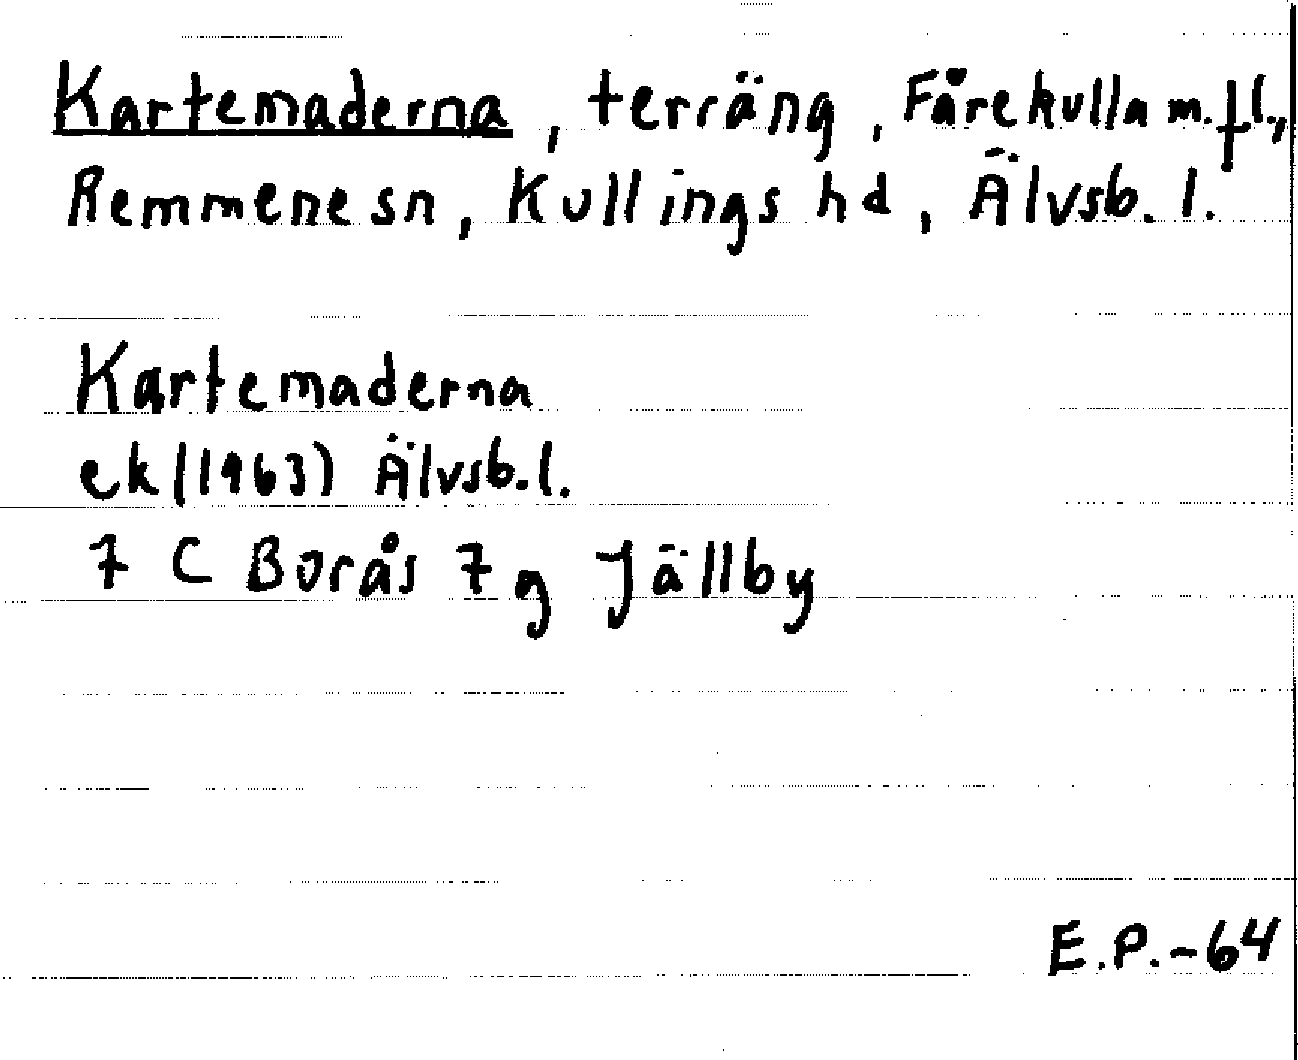 Kartemaderna, terräng, Fårekulla m.fl.,
Remmene sn, Kullings hd, Älvsb. l.
Kartemaderna
ek (1963) Älvsb. l.
7 C Borås 7 g Jällby
E.P.-64